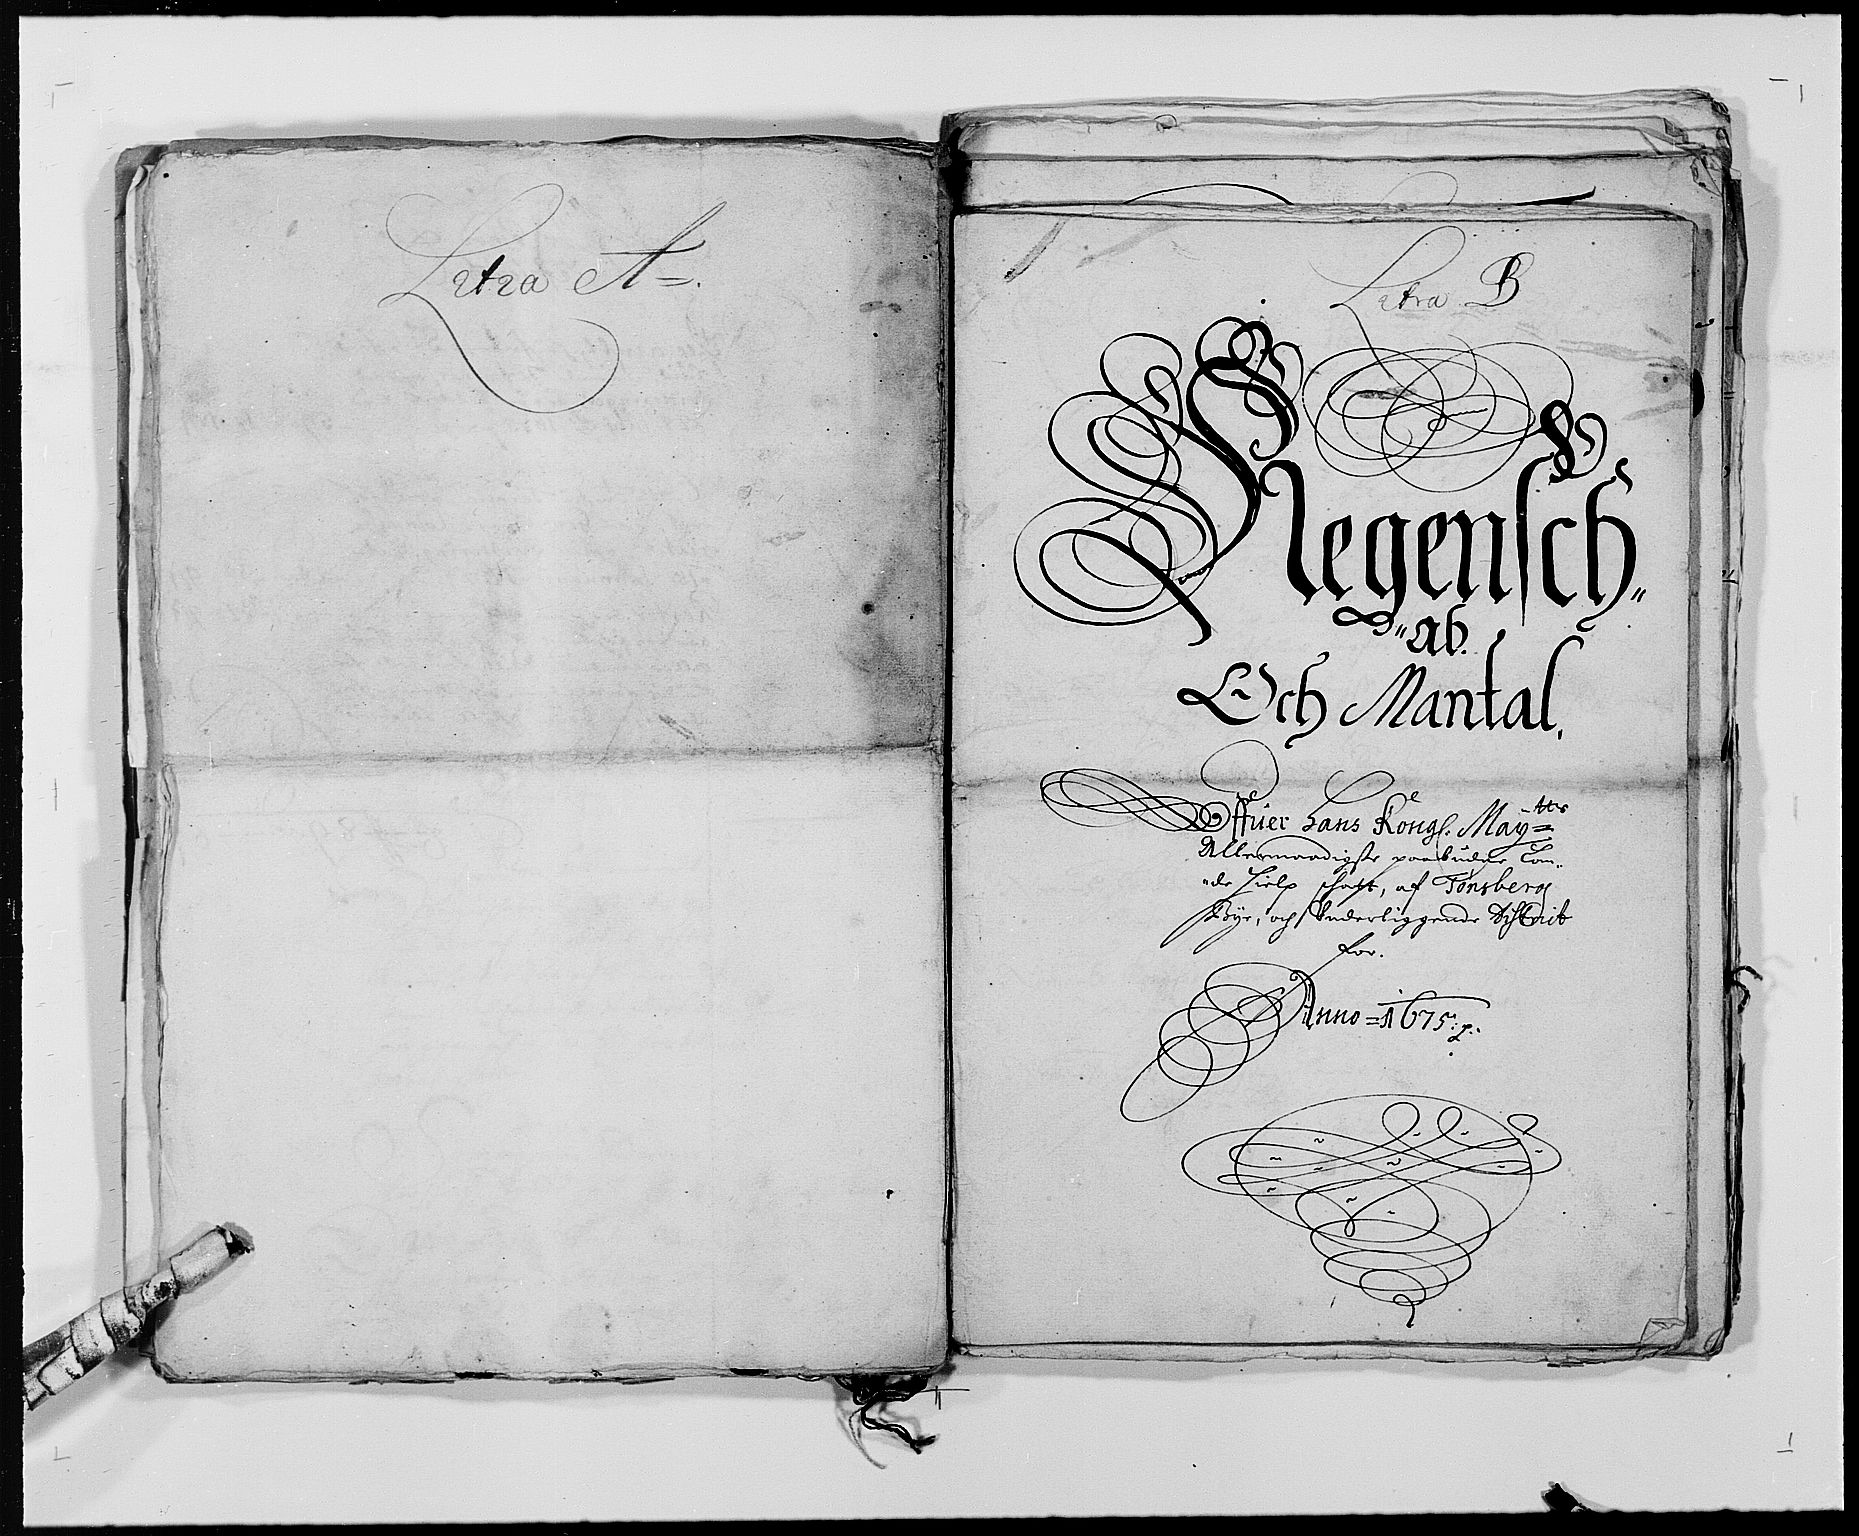 Letra A=.
Letra B
Regensch„
„ab.
Och Mantal,
Offuer Hans Kongl. May=ttes
Allernaadigste paabudne Con„
„de Hielp schatt, af Tonsberg
Bye, och Underliggende District
for.
Anno=1675:p: